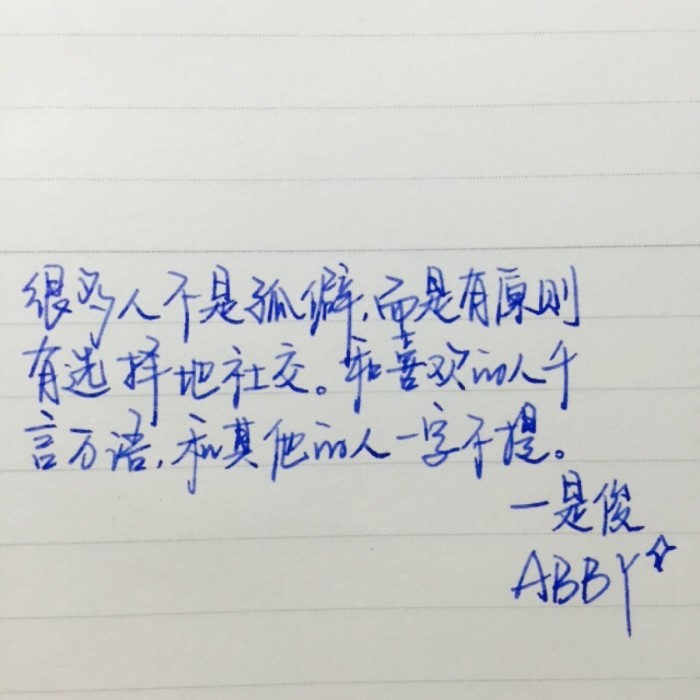 很多人不是孤僻,而是有原则
有选择地社交。和喜欢的人千
言万语,和其他的人一字不提。
一是俊
ABBY☆